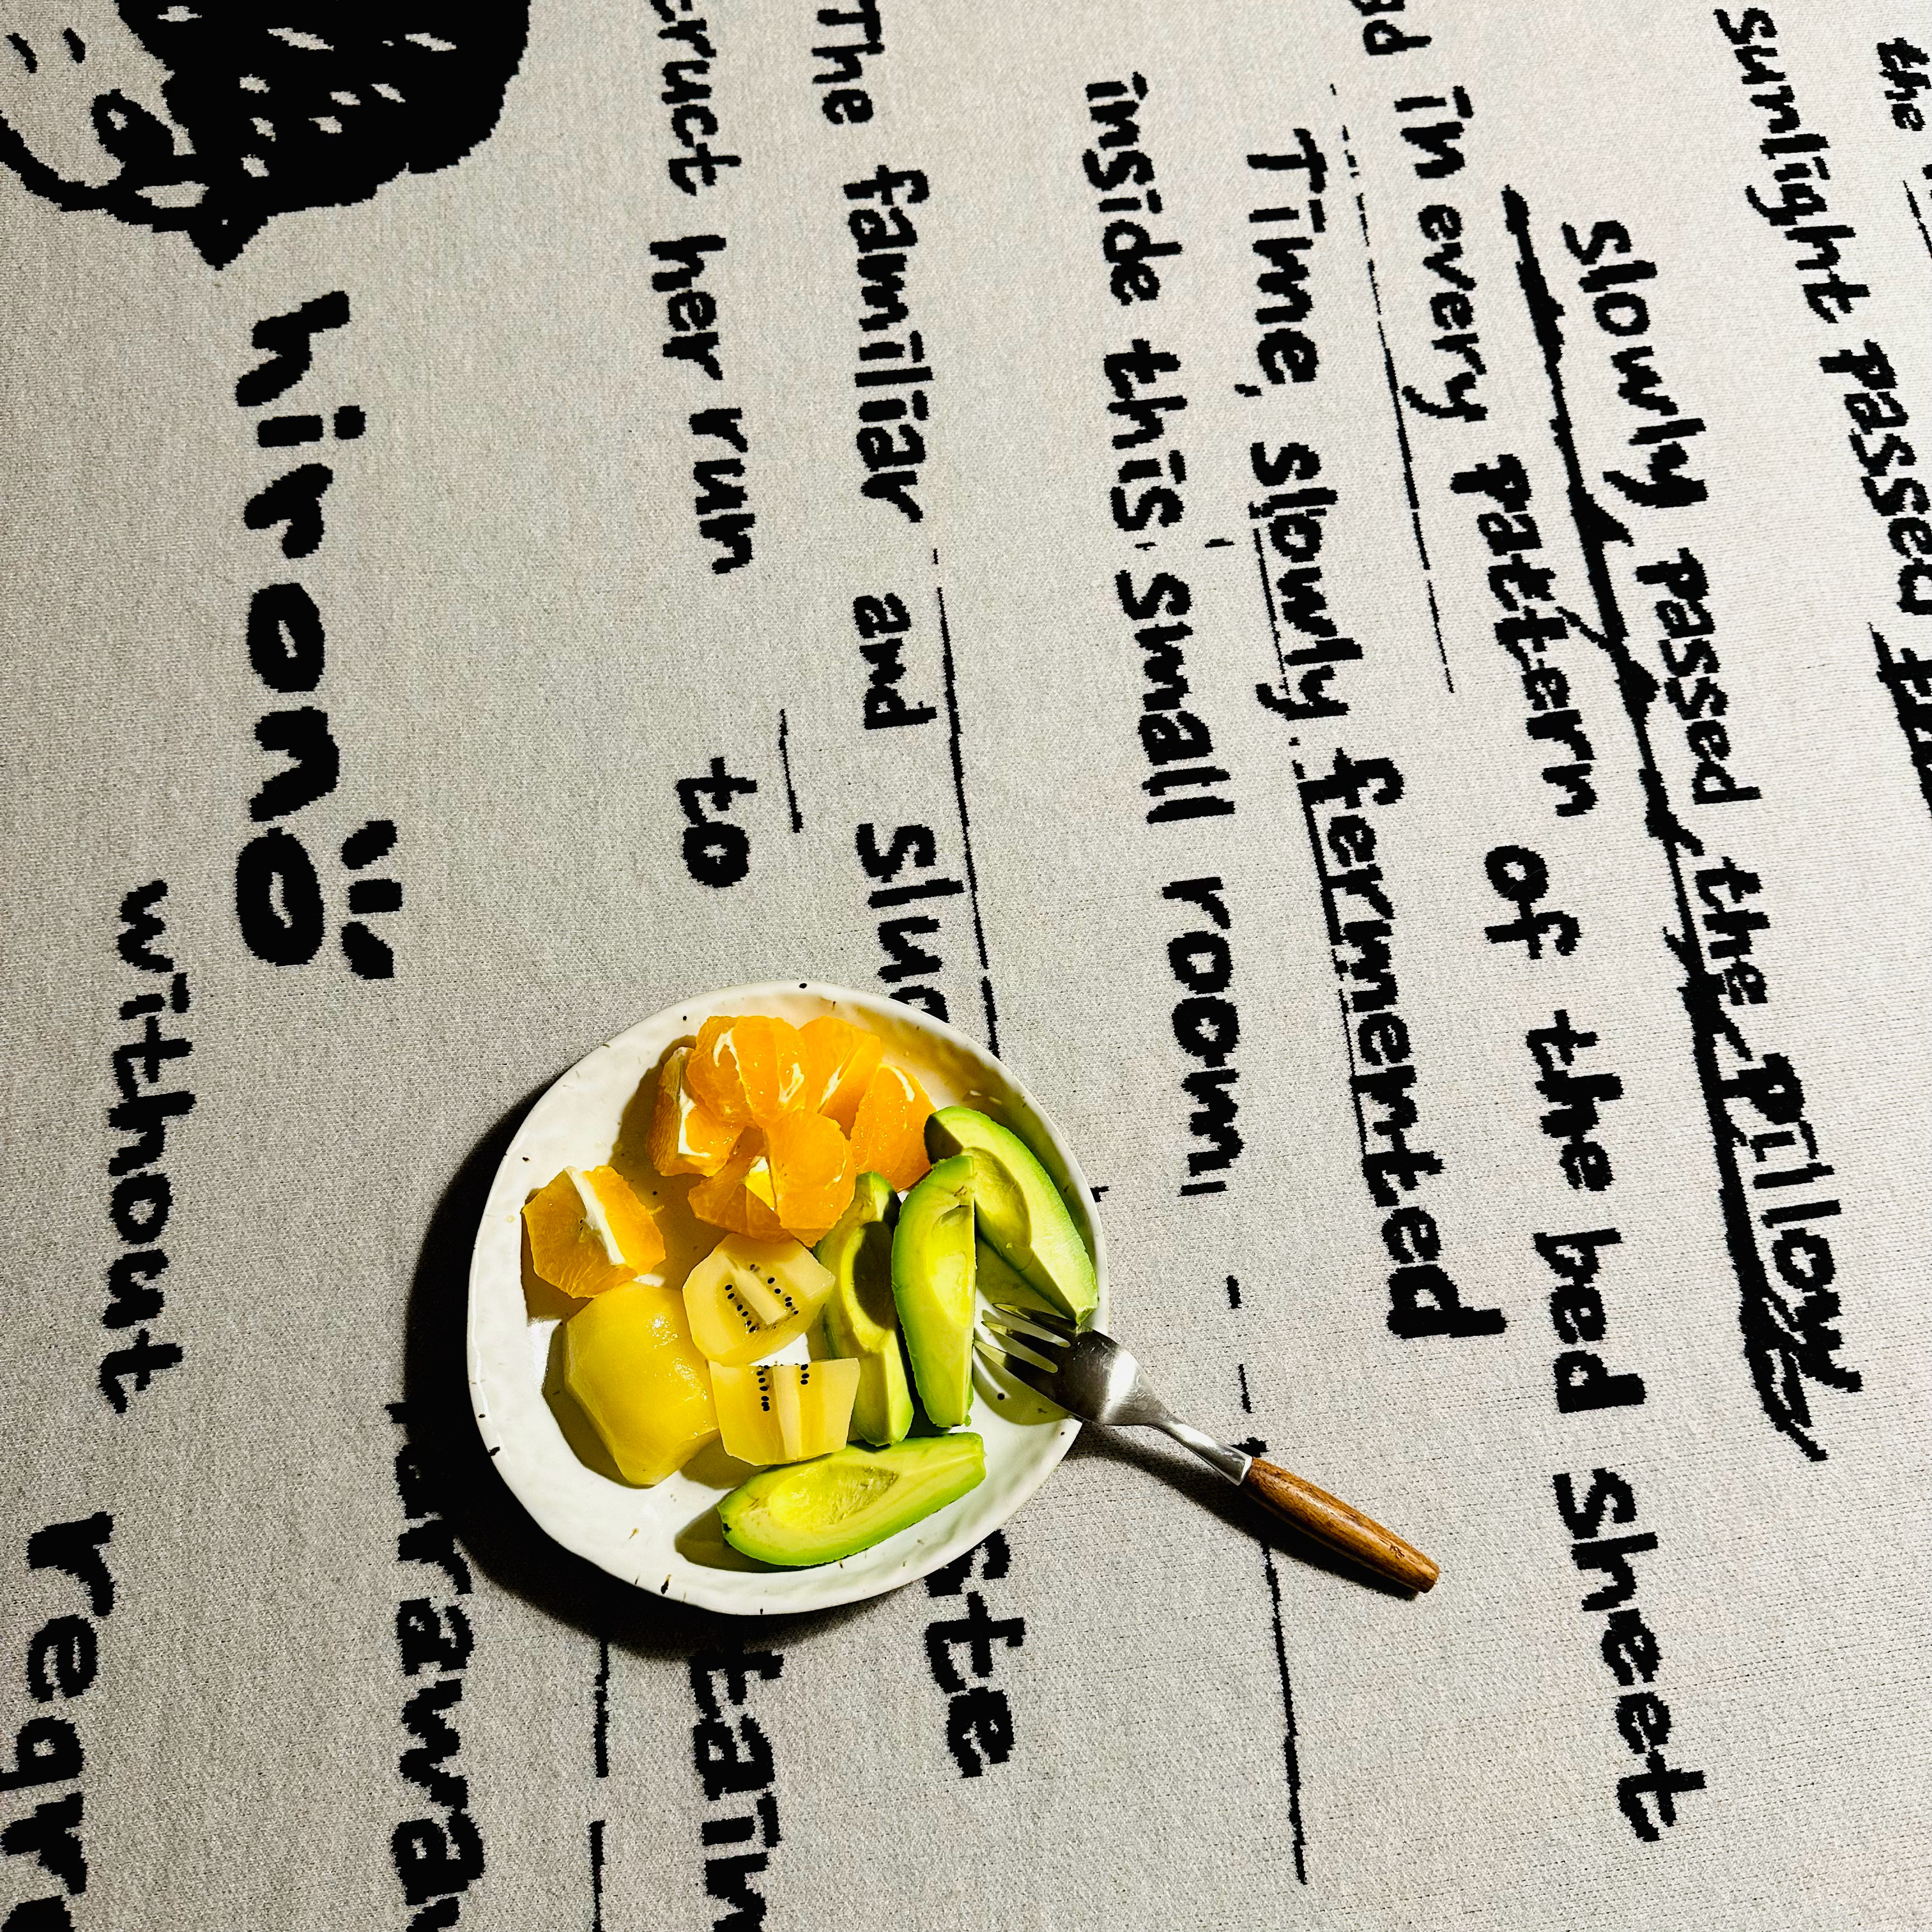 the
sunlight passed
slowly passed the pillow
in every pattern of the bed sheet
Time, slowly fermented
inside this small room
The familiar and
her run to
hirono
without